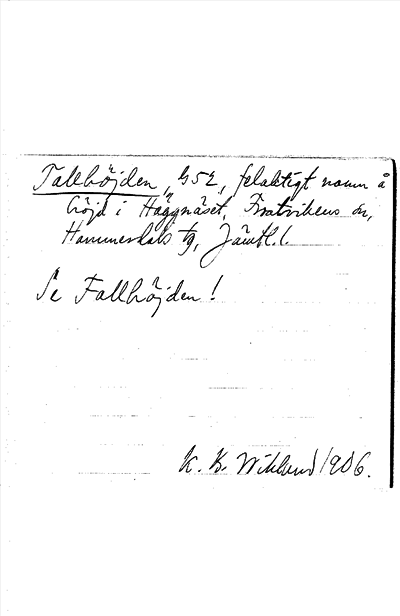 Tallhöjden, G52, felaktigt namn å
höjd i Häggnäset, Frostvikens sn,
Hammerdals tg, Jämtl. l.
Se Fallhöjden!
K. B. Wiklund 1906.